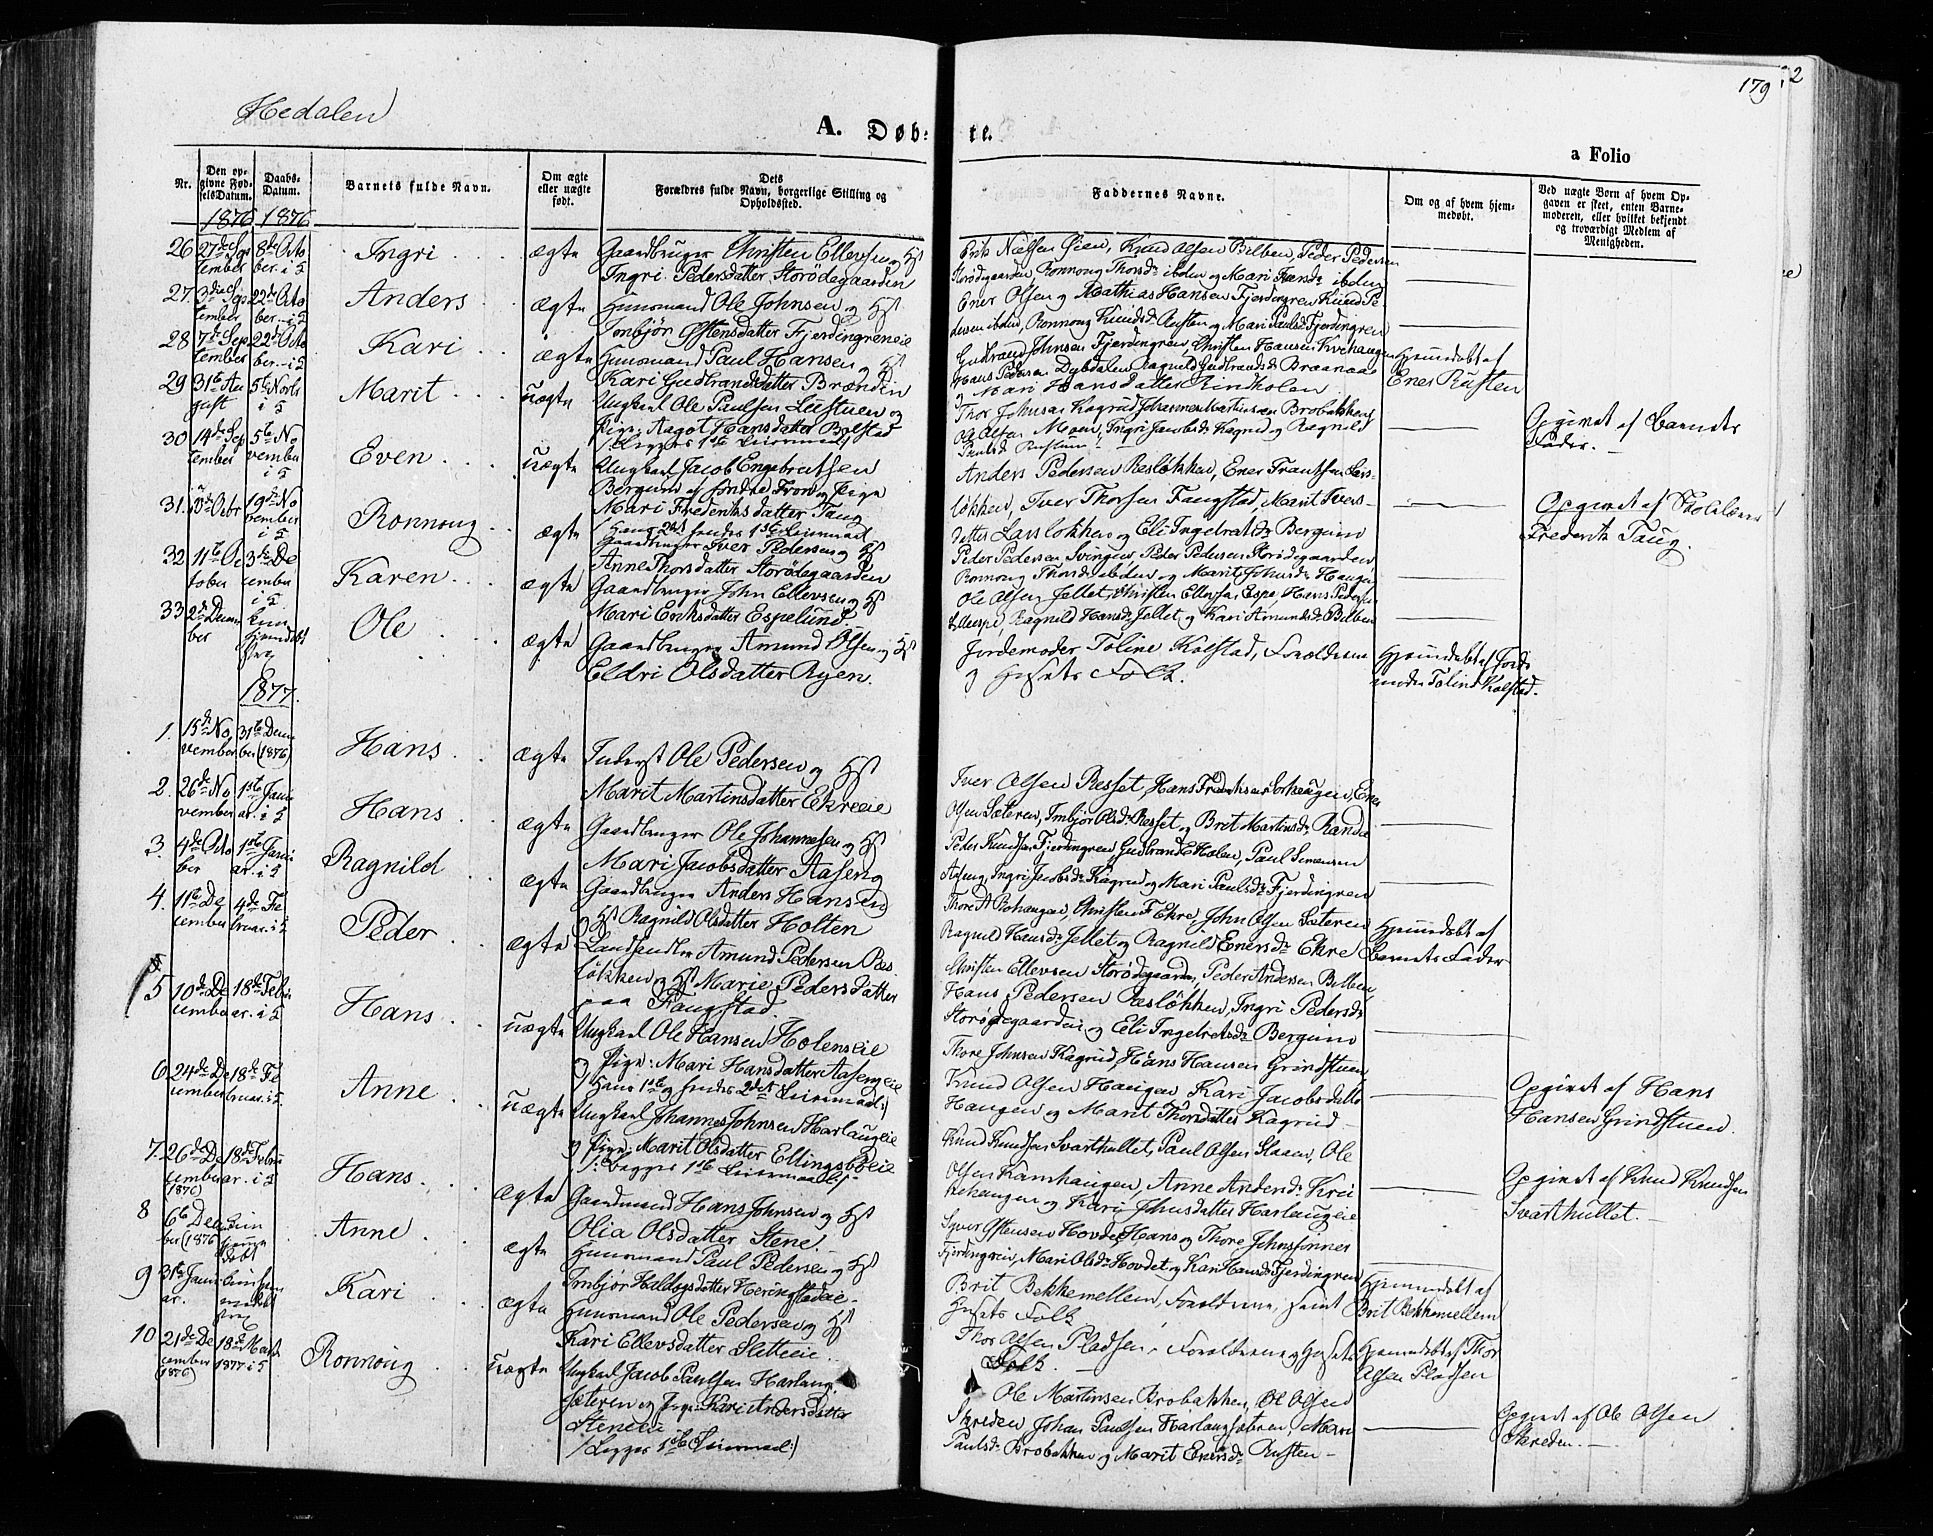 179
2
Hedalen
A. Døb-
te.
a Folio
Nr.
Den op-
givne Fød-
selsDatum.
Daabs-
Datum.
Barnets fulde Navn.
Om ægte
eller uægte
født.
Dets
Forældres fulde Navn, borgerlige Stilling og
Opholdssted.
Faddernes Navne.
Om og af hvem hjem-
medøbt.
Ved uægte Børn af hvem Op-
gaven er skeet, enten Barne-
moderen, eller hvilket bekjendt
og troværdigt Medlem af
Menigheden.
1876 1876
26 27de Sep
tember
8de Octo
ber. i 5
Ingri
ægte
Gaardbruger Christen Ellevsen og Hst
Ingri Pedersdatter Storødegaarden
Erik Nielsen Øien, Knud Olsen Bilben, Peder Pedersen
Storødegaarden, Ronnoug Thorsdr ibden og Mari Fransdr ibden
27. 3die Sep
tember
22de Octo
ber. i 5
Anders
ægte
Huusmand Ole Johnsen og Hst
Imbjør Østensdatter Fjerdingreneie
Ener Olsen og Mathias Hansen Fjerdingren Knud Pe
dersen ibden, Ronnoug Knudsdr Rusten og Mari Paulsdr Fjerdingren
28 7de Sep
tember
22de Octo
ber. i 5
Kari
ægte
Huusmand Paul Hansen og Hst
Kari Gudbrandsdatter Brænden
Gudbrand Johnsen Fjerdingren, Christen Hansen Kirkehaugen
Hans Pedersen Dybdalen Ragnild Gudbrandsdr Braanaas
og Mari Hansdatter Rinholen
Hjemmedøbt af
Ener Rusten
29 31te Au
gust
5te Novbr
i 5
Marit
uægte
Ungkarl Ole Paulsen Liestuen og
Pige: Aagot Hansdatter Bolstad
/: begges 1ste Leiermaal
Thor Johnsen Kagrud Johannes Martinsen Brobakken
Ole Olsen Moen, Ingri Jacobsdr Kagrud og Ragnild
Paulsd Rustun
Opgivet af Barnets
Fader.
30 14de Sep
tember
5te No
vember
i 5
Even
uægte
Ungkarl Jacob Engebretsen
Bergum af søndre Fron og Pige
Mari Frederiksdatter Taug
/: Hans 2det hendes 1ste Leiermaal
Anders Pedersen Reslökken, Ener Frantsen Lars-
løkken, Iver Thorsen Fangstad, Marit Ivers-
datter Larsløkken og Eli Ingebretsdr Bergum
Opgivet af Skolelærer
Frederik Taug.
31. Octbr
19de No
vember
i 5
Ronnoug
ægte
Gaardbruger Iver Pedersen og Hst
Anne Thorsdatter Storødegaarden
Peder Pedersen Svingen Peder Pedersen Storødegaarden
Ronnoug Thorsd ibden og Marit Johnsdr Haugen
32 11te Oc
tober
3de De
cember
i 5.
Karen
ægte
Gaardbruger John Ellevsen og Hst
Mari Eriksdatter Espelund.
Ole Olsen Jellet, Christen Ellevsen Espe, Hans Pedersen
Lilleespe, Ragnild Hansdr Jellet og Kari Amundsdr Bilben
33 2de Decem
ber
Kun
hjemdøbt
Ole
ægte
Gaardbruger Amund Olsen og Hst
Eldri Olsdatter Ryen.
Jordemoder Toline Kolstad, Forældrene
og Husets Folk.
Hjemmedøbt af Jorde
moder Toline Kolstad.
1877.
1. 15de No
vember
31te Decem
ber (1876)
Hans
ægte
Inderst Ole Pedersen og Hst
Marit Martinsdatter Ekreeie
Iver Olsen Resset, Hans Fredriksen Torhaugen, Ener
Olsen Sæteren, Imbjør Olsdr Resset og Brit Martinsdr Randa
2. 26de No
vember
1ste Janu
ar. i 5
Hans
ægte
Gaardbruger Ole Johannesen og Hst
Mari Jacobsdatter Aaseng
Peder Knudsen Fjerdingren Gudbrand E Holen, Paul Simensen
Aaseng, Ingri Jacobsdr Kagrud og Mari Paulsdr Fjerdingren
3. 4de Octo
ber
1ste Janu
ar. i 5
Ragnild
ægte
Gaardbruger Anders Hansen
og Hst Ragnild Olsdatter Holten
Thore A Bohaugen, Christen F Ekre, John Olsen Sæteren
Ragnild Hansdr Jellet og Ragnild Enersdr Ekre
Hjemmedøbt af
Barnets Fader
4. 11te De
cember
4de Fe
bruar. i 5
Peder
ægte
Landhandler Amund Pedersen Res
løkken og Hst Marie Pedersdatter
paa Fangstad.
Christen Ellevsen Storødegaarden, Peder Andersen Bilben,
Hans Pedersen Reslökken, Ingri Pedersdr
Storødegaarden og Eli Ingebretsdr Bergum
5 10de De
cember
18de Febru
ar. i 5
Hans
uægte
Ungkarl Ole Hansen Holenseie
og Pige: Mari Hansdatter Aasengeie
/: Hans 1ste og hendes 2det Leiermaal:/
Thore Johnsen Kagrud, Hans Hansen Grindstuen,
Knud Olsen Haugen Kari Jacobsdatter
Haugen og Marit Thorsdatter Kagrud
Opgivet af Hans
Hansen Grindstuen.
6 24de De
cember
18de Fe
bruar. i 5.
Anne
uægte
Ungkarl Johannes Johnsen Harlaugeie
og Pige: Marit Olsdatter Ellingsbøeie
/: begges 1ste Leiermaal:/
Knud Knudsen Svarthullet, Paul Olsen Slaaen, Ole
Olsen Kamhaugen, Anne Andersdr Kirke
kehaugen og Kari Johnsdatter Harlaugeie
Opgivet af Knud Knudsen
Svarthullet.
7. 26de De
cember
(1876)
18de Febru
ar. i 5
Hans
ægte
Gaardmand Hans Johnsen og Hst
Olia Olsdatter Stene.
Syver Østensen Hovdet, Hans og Thore Johnssønner
Fjerdingren, Mari Olsdr Hovdet og Kari Hansdr Fjerdingren
8 6te Decem
ber (1876
Kun
hjemme
døbt
Anne
ægte
Huusmand Paul Pedersen og Hst
Imbjør Hallsdatter Heringstadeie
Brit Bekkemellem, Forældrene, samt
Husets Folk
Hjemmedøbt af
Brit Bekkemellem
9 31te Janu
ar.
Kun hjem
medøbt
Kari
ægte
Huusmand Ole Pedersen og Hst
Kari Ellevsdatter Sletteeie
Thor Olsen Pladsen, Forældrene og Husets
Folk.
Hjemmedøbt af Thor
Olsen Pladsen
10 21de De
cember
(1876)
18de Marts
1877 i 5
Ronnoug
uægte
Ungkarl Jacob Paulsen Harlaug-
sæteren og Pige: Kari Andersdatter
Steneeie
/: begges 1ste Leiermaal:/
Ole Martinsen Brobakken, Ole Olsen
Skreden, Johan Paulsen Harlaugsæteren, Mari
Paulsdr Brobakken og Marit Enersdr Rusten
Opgivet af Ole Olsen
Skreden.